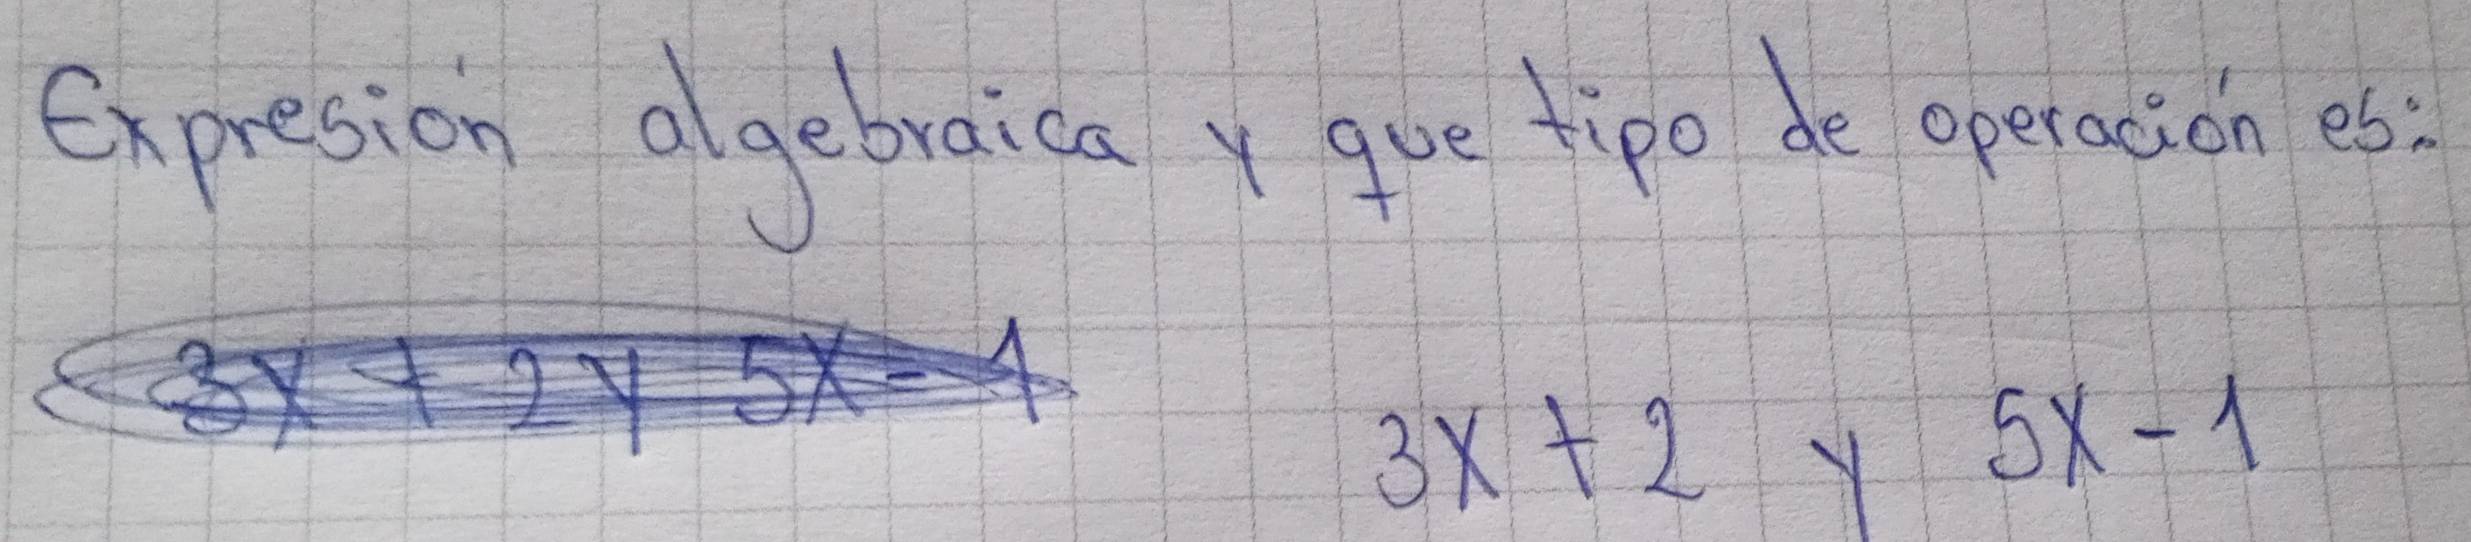 Expresión algebraica y que tipo de operación es:
3x + 2 y 5x - 1
3x + 2 y 5x - 1